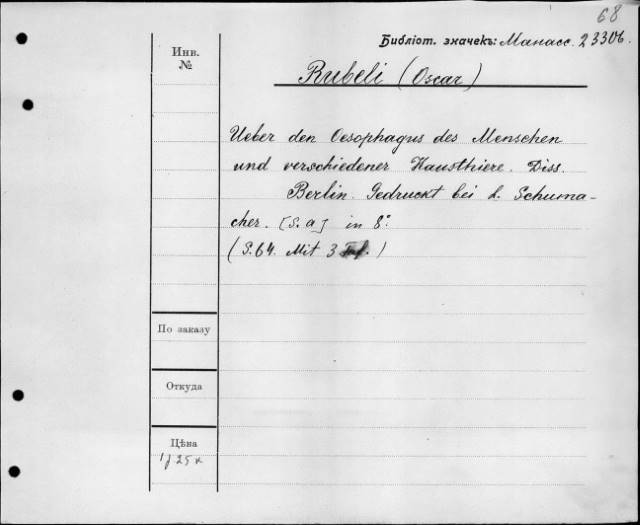 68
Библіот. значекъ: Манасс. 23306.
Инв.
№
Rubeli (Oscar)
Ueber den Oesophagus des Menschen
und verschiedener Hausthiere. Diss.
Berlin. Gedruckt bei L. Schuma-
cher. [S. a] in 8°
(S. 64. Mit 3 Taf.)
По заказу
Откуда
Цѣна